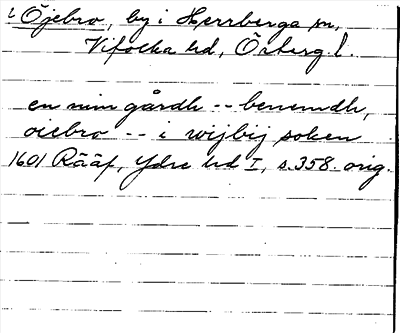 i Öjebro, by i Herrberga sn,
Vifolka hd, Östergl.
en min gårdh -- benemdh,
oiebro -- i wijbij soken
1601 Rääf, Ydre hd I, s. 358. orig.